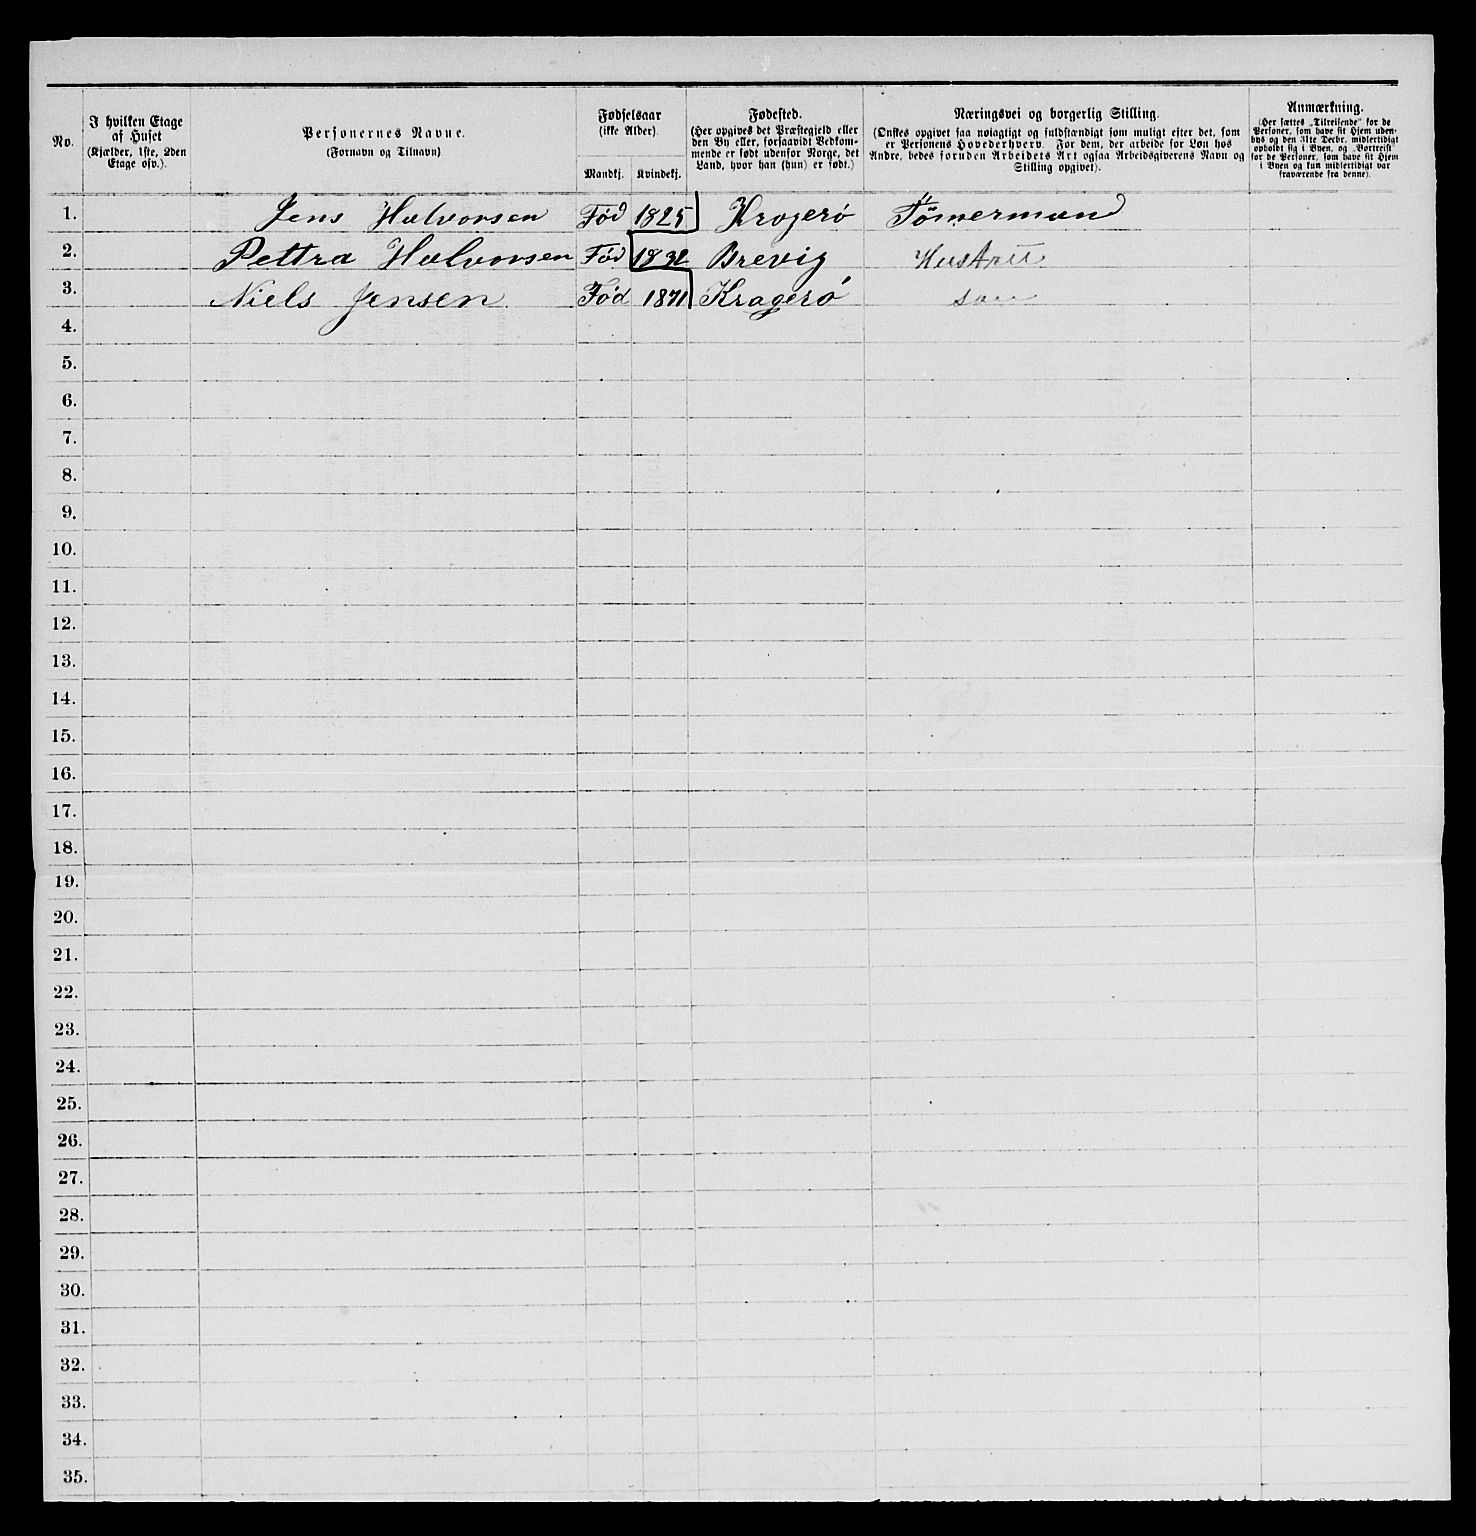 No.
I hvilken Etage
af Huset
(Kjælder, 1ste, 2den
Etage osv.).
Personernes Navne.
(Fornavn og Tilnavn)
Fødselsaar
(ikke Alder).
Mandkj.
Kvindekj.
Fødested.
(Her opgives det Præstegjeld eller
den By eller, forsaavidt Vedkom-
mende er født udenfor Norge, det
Land, hvor han (hun) er født.)
Næringsvei og borgerlig Stilling.
(Ønskes opgivet saa nøiagtigt og fuldstændigt som muligt efter det, som
er Personens Hovederhverv. For dem, der arbeide for Løn hos
Andre, bedes foruden Arbeidets Art ogsaa Arbeidsgiverens Navn og
Stilling opgivet).
Anmærkning.
(Her sættes „Tilreisende“ for de
Personer, som have sit Hjem uden-
bys og den 31te Decbr. midlertidigt
opholdt sig i Byen, og „Bortreist“
for de Personer, som have sit Hjem
i Byen og kun midlertidigt var
fraværende fra denne).
1. Jens Halvorsen Fød 1825 Kragerö Tömermand
2. Pettra Halvorsen Fød 1832 Brevig Hustru
3. Niels Jensen Fød 1871 Kragerö søn
4.
5.
6.
7.
8.
9.
10.
11.
12.
13.
14.
15.
16.
17.
18.
19.
20.
21.
22.
23.
24.
25.
26.
27.
28.
29.
30.
31.
32.
33.
34.
35.